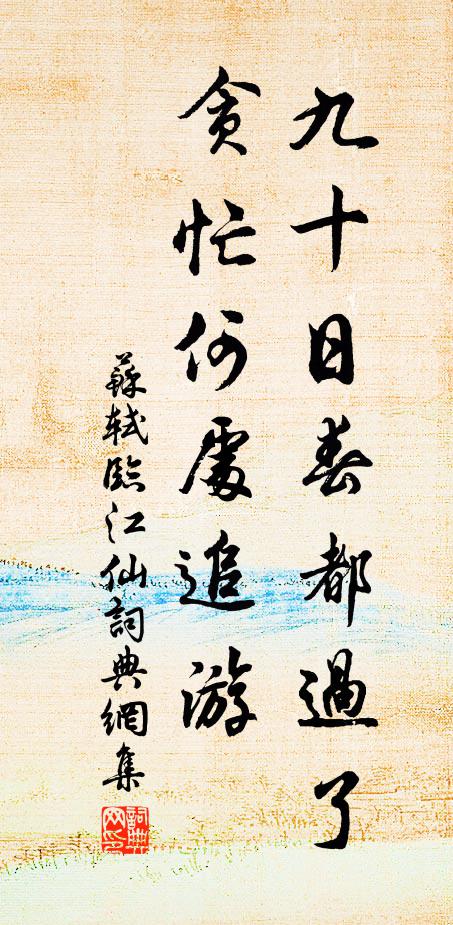 九十日春都過了
貪忙何處追游
蘇軾臨江仙詞典網集
詞典網印